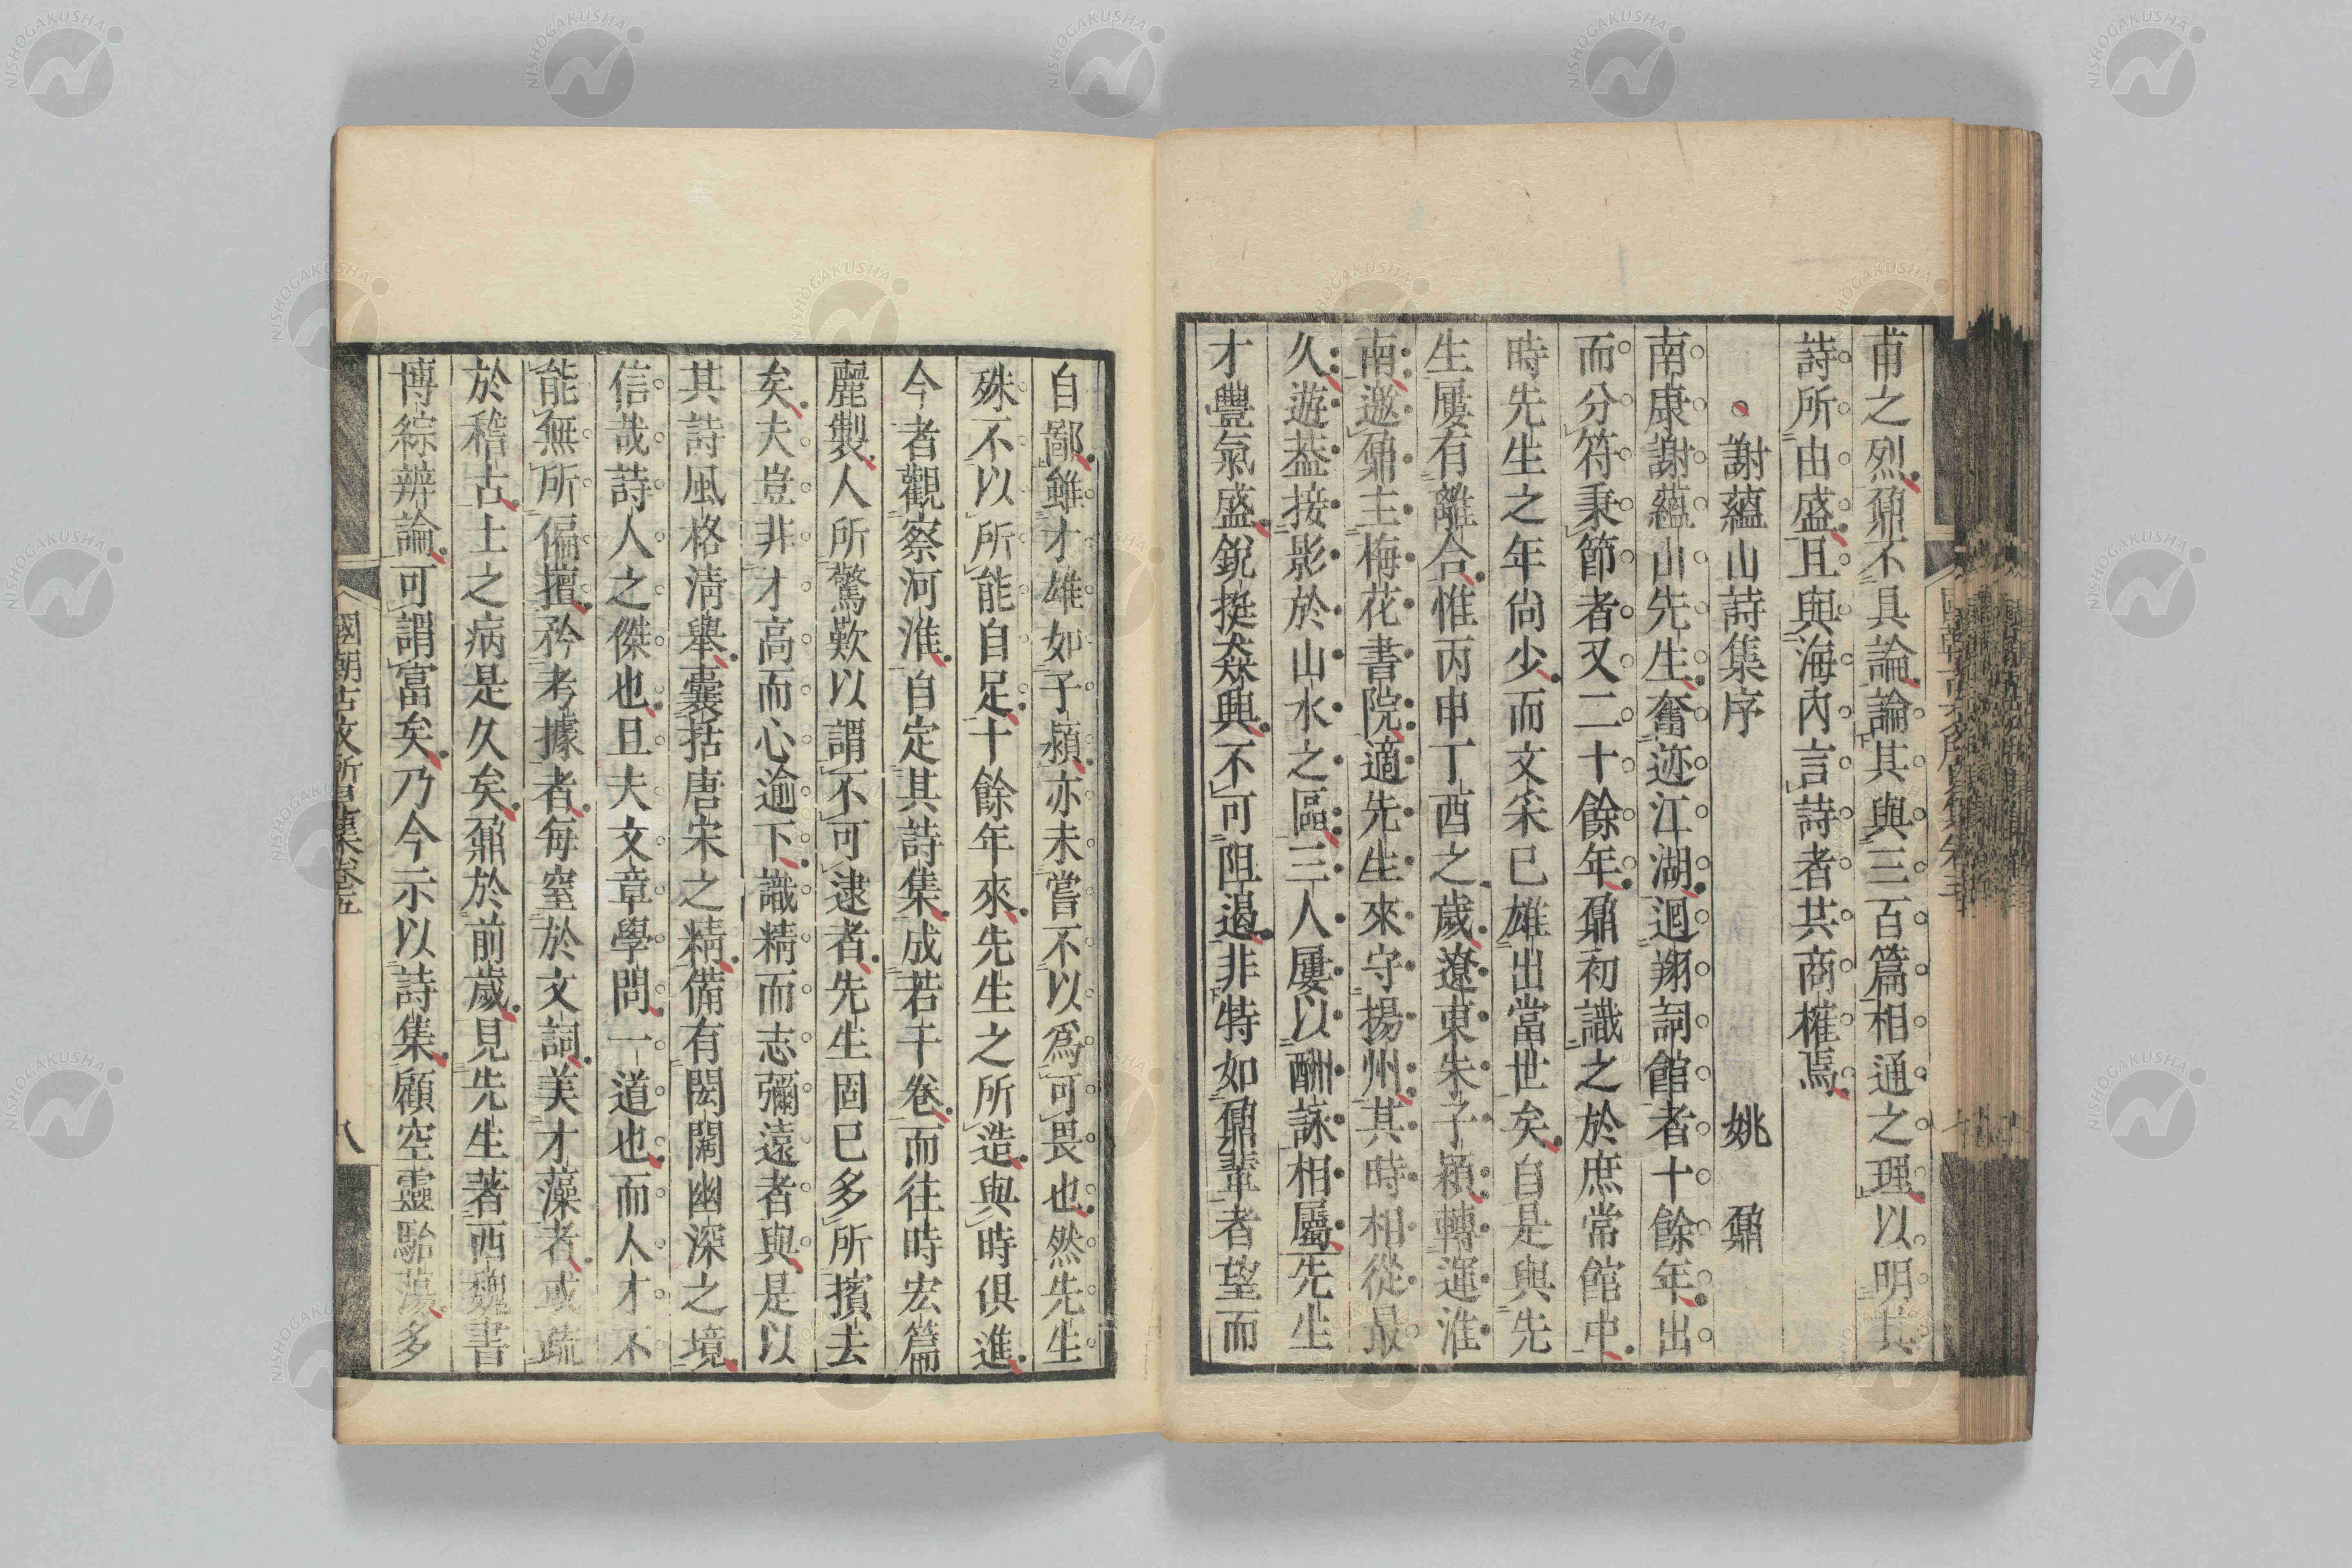 甫之烈鼐不具論論其與三百篇相通之理以明其
詩所由盛且與海內言詩者共商榷焉
謝蘊山詩集序 姚 鼐
南康謝蘊山先生奮迹江湖迴翔詞館者十餘年出
而分符秉節者又二十餘年鼐初識之於庶常館中
時先生之年尙少而文采已雄出當世矣自是與先
生屢有離合惟丙申丁酉之歲遼東朱子潁轉運淮
南邀鼐主梅花書院適先生來守揚州其時相從最
久遊葢接影於山水之區三人屢以酬詠相屬先生
才豐氣盛銳挺猋興不可阻遏非特如鼐輩者望而
自鄙雖才雄如子潁亦未嘗不以爲可畏也然先生
殊不以所能自足十餘年來先生之所造與時俱進
今者觀察河淮自定其詩集成若干卷而往時宏篇
麗製人所驚歎以謂不可逮者先生固已多所擯去
矣夫豈非才高而心逾下識精而志彌遠者與是以
其詩風格淸舉囊括唐宋之精備有閎闊幽深之境
信哉詩人之傑也且夫文章學問一道也而人才不
能無所偏擅矜考據者每窒於文詞美才藻者或疏
於稽古士之病是久矣鼐於前歲見先生著西魏書
博綜辨論可謂富矣乃今示以詩集顧空靈駘蕩多
國朝古文所見集卷五
八
NISHOGAKUSHA